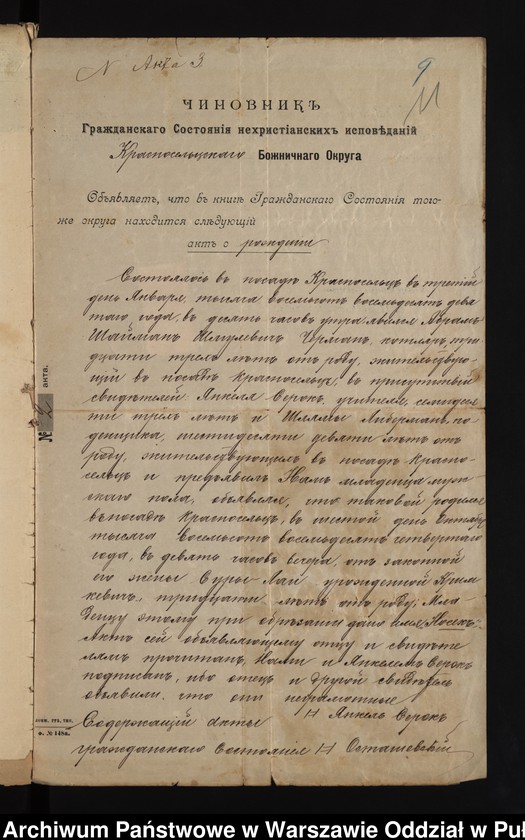 N. Акта 3
9
11
ЧИНОВНИКЪ
Гражданскаго Состоянія нехристіанскихъ исповѣданій
Красносельцскаго Божничнаго Округа
Объявляетъ, что въ книгѣ Гражданскаго Состоянія того-
же округа находится слѣдующій
актъ о рожденіи
Состоялось въ посадѣ Красносельцъ въ третій
день Января, тысяча восемьсотъ восемьдесятъ девя
того года, въ десять часовъ утра. явился Абрамъ
Шайманъ Шмулевичъ Германъ, три
дцати трехъ лѣтъ отъ роду, жительствую-
щій въ посадѣ Красносельцъ, въ присутствіи
свидѣтелей Янкеля Серокъ, учителя семидеся
ти трехъ лѣтъ и Шлямы Либерманъ, по
денщика, шестидесяти девяти лѣтъ отъ
роду, жительствующихъ въ посадѣ Красно-
сельцъ и предъявилъ Намъ младенца муж-
скаго пола, объявляя, что таковой родился
въ посадѣ Красносельцъ, въ шестой день Октября
тысяча восемьсотъ восемьдесятъ четвертаго
года, въ девять часовъ вечера, отъ законной
его жены Суры-Лаи урожденной Крим
кевичъ, тридцати лѣтъ отъ роду, Мла
денцу этому при обрѣзаніи дано имя Йосекъ.
Актъ сей объявляющему отцу и свидѣте
лямъ прочитанъ, Нами и Янкелемъ Серокъ
подписанъ, ибо отецъ и другой свидѣтель
объявили, что они неграмотные
Содержащій акты Янкель Серокъ
гражданскаго состоянія Осташевскій
№ 2 акта.
ф. № 148а.
Archiwum Państwowe w Warszawie Oddział w Puł